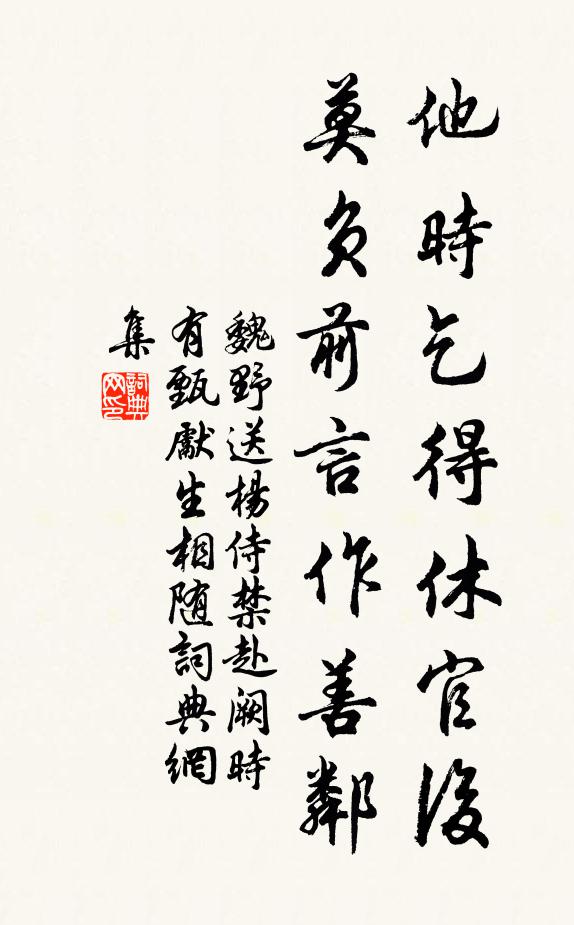 他時乞得休官後
莫負前言作善鄰
魏野送楊侍禁赴阙時
有甄獻生相随詞典網
集
詞典網印